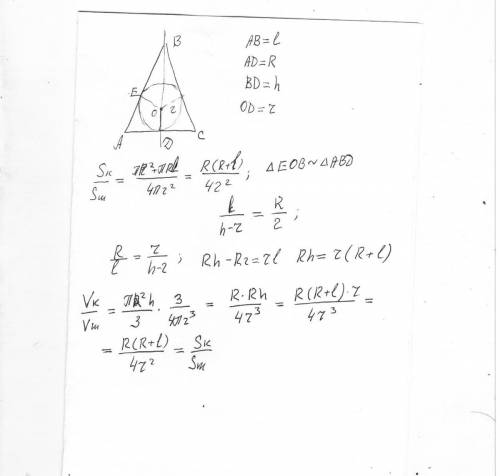 B
E
O
r
A
D
C
AB=l
AD=R
BD=h
OD=r
Sк/Sш = (πR²+πRl)/(4πr²) = R(R+l)/(4r²); △EOB∼△ABD
l/(h-r) = R/r;
R/l = r/(h-r); Rh-Rr=rl Rh=r(R+l)
Vк/Vш = πR²h/3 · 3/(4πr³) = R·Rh/(4r³) = R(R+l)·r/(4r³) =
= R(R+l)/(4r²) = Sк/Sш